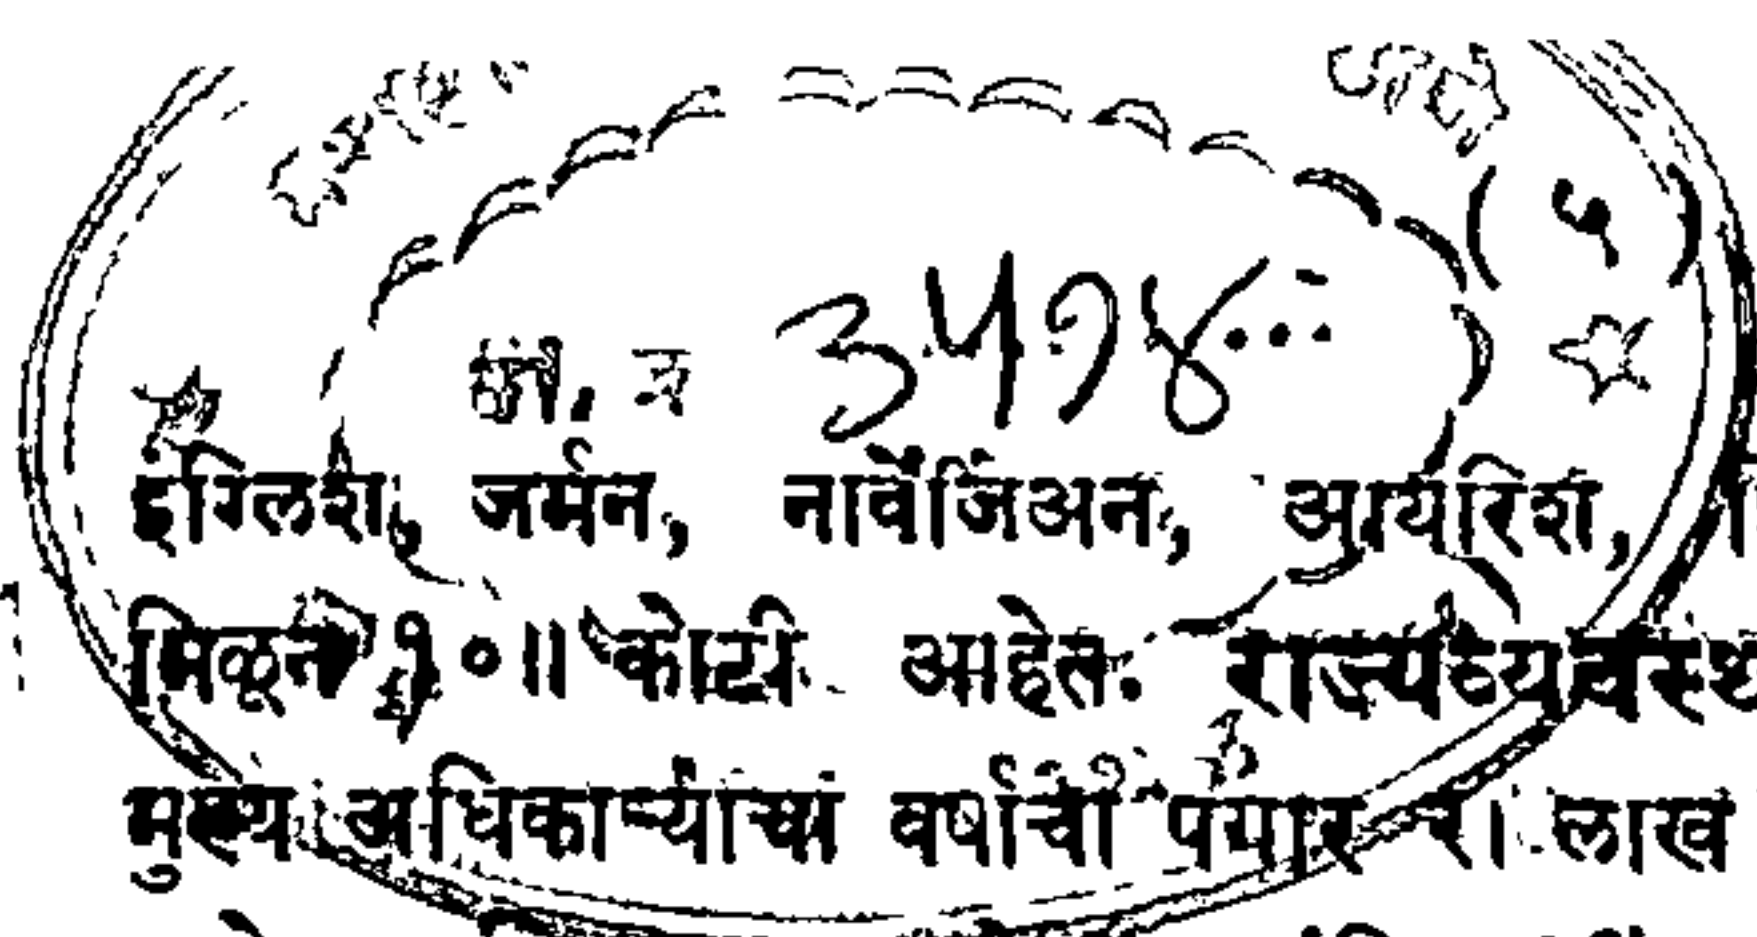 ( ५ )
३५१४
इंग्लिश, जर्मन, नार्वेजिअन, आयरिश,
मिळून १०॥ कोटी आहेत. राज्यव्यवस्थ
मुख्य अधिकाऱ्याचा वर्षाचा पगार २। लाख